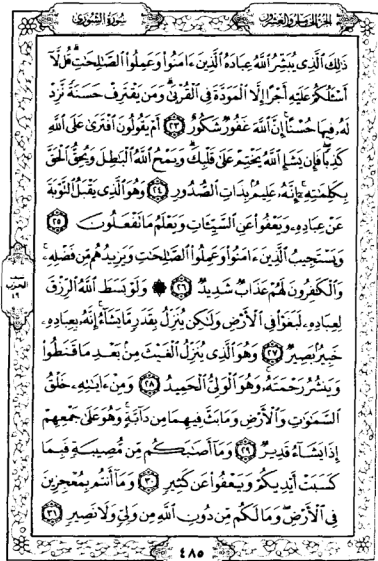 الجزء الخامس والعشرون
سورة الشورى
ذَٰلِكَ ٱلَّذِى يُبَشِّرُ ٱللَّهُ عِبَادَهُ ٱلَّذِينَ ءَامَنُوا۟ وَعَمِلُوا۟ ٱلصَّـٰلِحَـٰتِ ۗ قُل لَّآ
أَسْـَٔلُكُمْ عَلَيْهِ أَجْرًا إِلَّا ٱلْمَوَدَّةَ فِى ٱلْقُرْبَىٰ ۗ وَمَن يَقْتَرِفْ حَسَنَةً نَّزِدْ
لَهُۥ فِيهَا حُسْنًا ۚ إِنَّ ٱللَّهَ غَفُورٌ شَكُورٌ ٢٣ أَمْ يَقُولُونَ ٱفْتَرَىٰ عَلَى ٱللَّهِ
كَذِبًا ۖ فَإِن يَشَإِ ٱللَّهُ يَخْتِمْ عَلَىٰ قَلْبِكَ ۗ وَيَمْحُ ٱللَّهُ ٱلْبَـٰطِلَ وَيُحِقُّ ٱلْحَقَّ
بِكَلِمَـٰتِهِۦٓ ۚ إِنَّهُۥ عَلِيمٌۢ بِذَاتِ ٱلصُّدُورِ ٢٤ وَهُوَ ٱلَّذِى يَقْبَلُ ٱلتَّوْبَةَ
عَنْ عِبَادِهِۦ وَيَعْفُوا۟ عَنِ ٱلسَّيِّـَٔاتِ وَيَعْلَمُ مَا تَفْعَلُونَ ٢٥
وَيَسْتَجِيبُ ٱلَّذِينَ ءَامَنُوا۟ وَعَمِلُوا۟ ٱلصَّـٰلِحَـٰتِ وَيَزِيدُهُم مِّن فَضْلِهِۦ ۚ
وَٱلْكَـٰفِرُونَ لَهُمْ عَذَابٌ شَدِيدٌ ٢٦ ۞ وَلَوْ بَسَطَ ٱللَّهُ ٱلرِّزْقَ
لِعِبَادِهِۦ لَبَغَوْا۟ فِى ٱلْأَرْضِ وَلَـٰكِن يُنَزِّلُ بِقَدَرٍ مَّا يَشَآءُ ۚ إِنَّهُۥ بِعِبَادِهِۦ
خَبِيرٌۢ بَصِيرٌ ٢٧ وَهُوَ ٱلَّذِى يُنَزِّلُ ٱلْغَيْثَ مِنۢ بَعْدِ مَا قَنَطُوا۟
وَيَنشُرُ رَحْمَتَهُۥ ۚ وَهُوَ ٱلْوَلِىُّ ٱلْحَمِيدُ ٢٨ وَمِنْ ءَايَـٰتِهِۦ خَلْقُ
ٱلسَّمَـٰوَٰتِ وَٱلْأَرْضِ وَمَا بَثَّ فِيهِمَا مِن دَآبَّةٍ ۚ وَهُوَ عَلَىٰ جَمْعِهِمْ
إِذَا يَشَآءُ قَدِيرٌ ٢٩ وَمَآ أَصَـٰبَكُم مِّن مُّصِيبَةٍ فَبِمَا
كَسَبَتْ أَيْدِيكُمْ وَيَعْفُوا۟ عَن كَثِيرٍ ٣٠ وَمَآ أَنتُم بِمُعْجِزِينَ
فِى ٱلْأَرْضِ ۖ وَمَا لَكُم مِّن دُونِ ٱللَّهِ مِن وَلِىٍّ وَلَا نَصِيرٍ ٣١
الحزب
٤٨٥